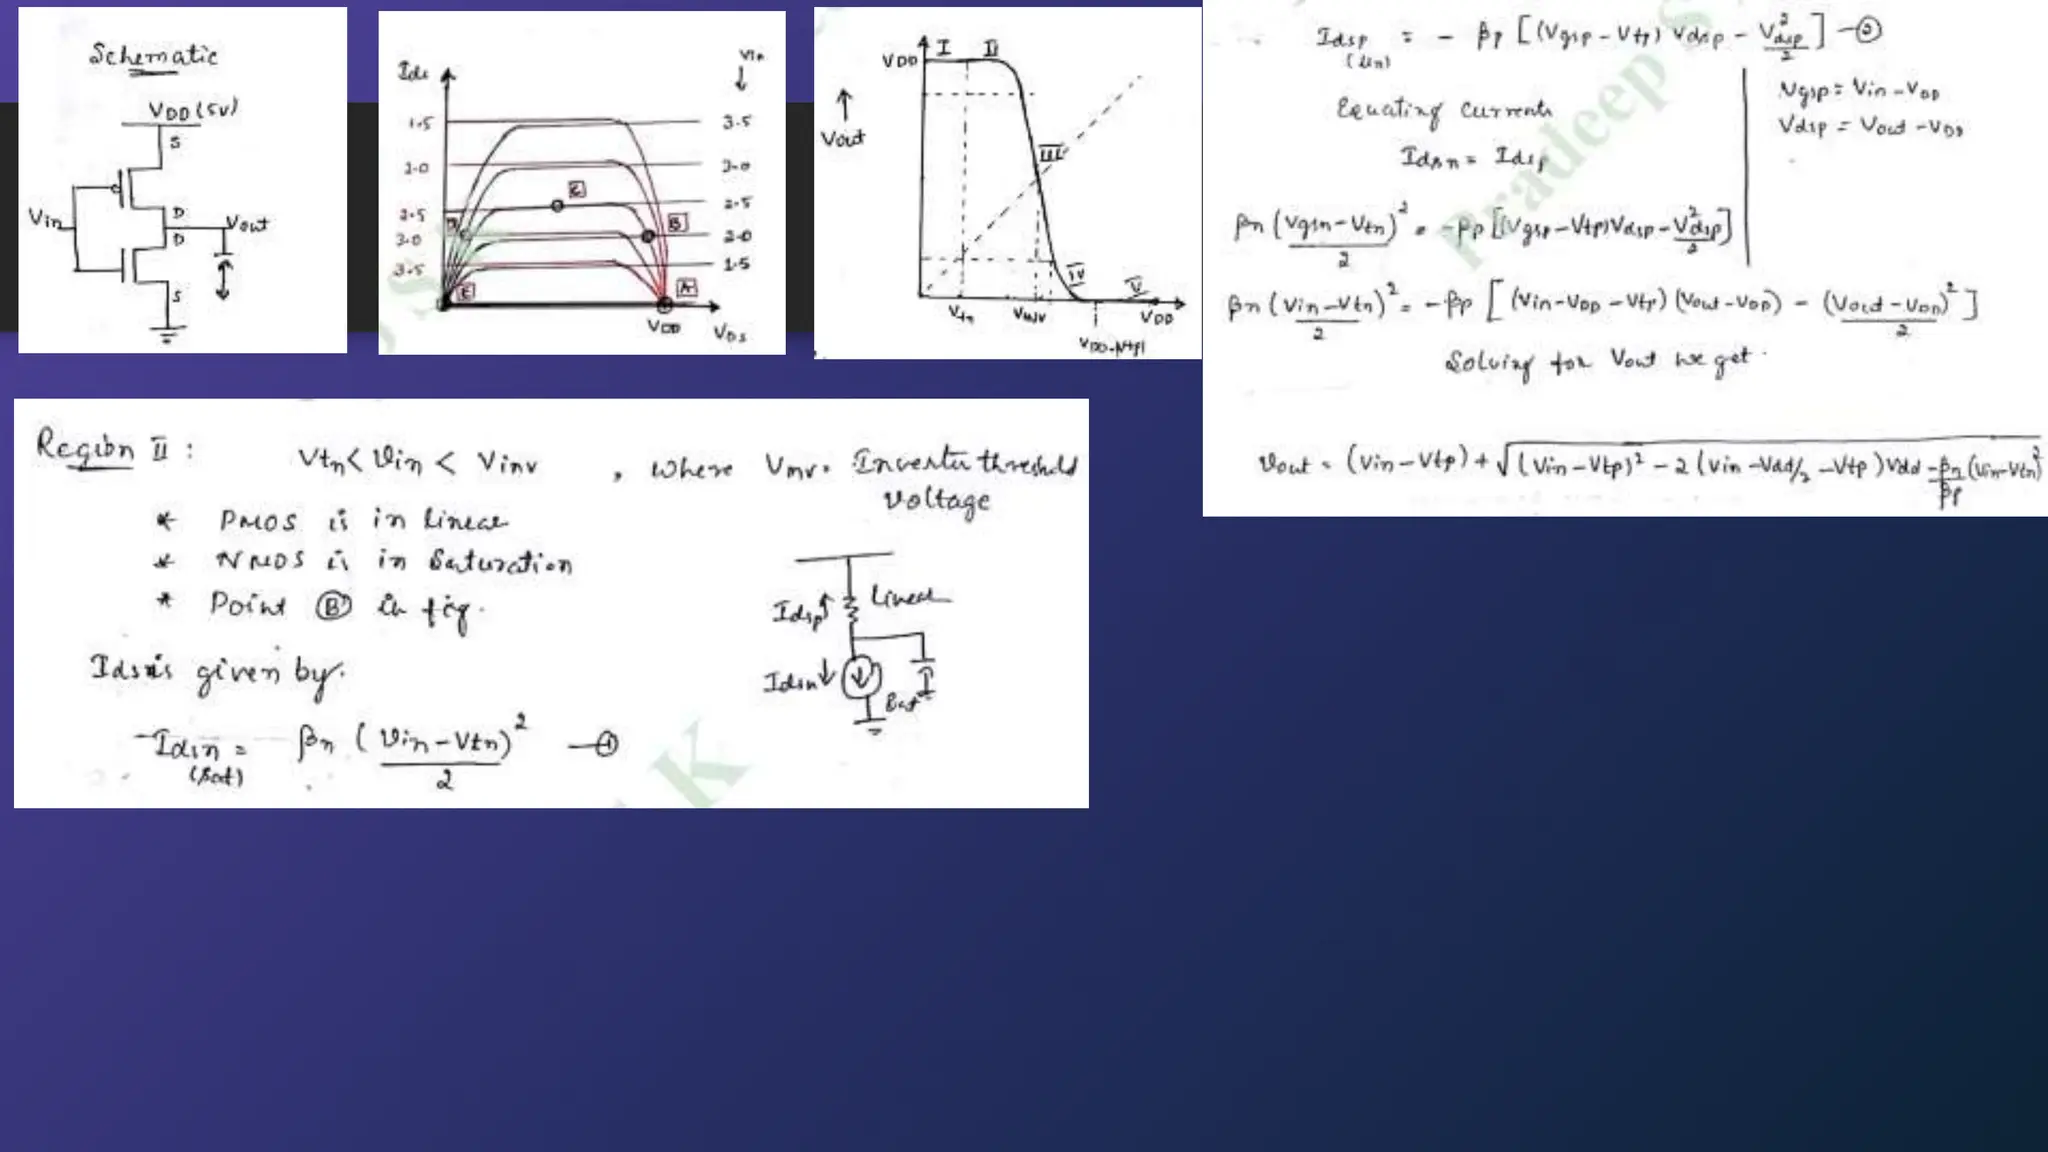 Schematic
VDD (5V)
S
D
Vin
Vout
D
S
Ids
Vin
1.5
3.5
2.0
3.0
C
2.5
2.5
B
3.0
2.0
3.5
1.5
E
A
VDD
VDs
I
II
VDD
Vout
III
IV
V
Vtn
Vinv
VDD
VDD-|Vtp|
Idsp = - βp [(Vgsp - Vtp) Vdsp - V²dsp/2] - ②
(lin)
Vgsp = Vin - VDD
Equating currents
Vdsp = Vout - VDD
Idsn = Idsp
βn (Vgsn - Vtn)²/2 = -βp [(Vgsp - Vtp) Vdsp - V²dsp/2]
βn (Vin - Vtn)²/2 = -βp [(Vin - VDD - Vtp) (Vout - VDD) - (Vout - VDD)²/2]
Solving for Vout we get.
Vout = (Vin - Vtp) + √(Vin - Vtp)² - 2 (Vin - Vdd/2 - Vtp) Vdd - βn/βp (Vin - Vtn)²
Region II :
Vtn < Vin < Vinv , where Vinv = Inverter threshold
voltage
* PMOS is in linear
* NMOS is in Saturation
* Point Ⓑ in fig.
Idsp
Linear
Idsn
Sat
is given by.
Idsn = βn (Vin - Vtn)²/2 - ①
(Sat)
Pradeep S
K